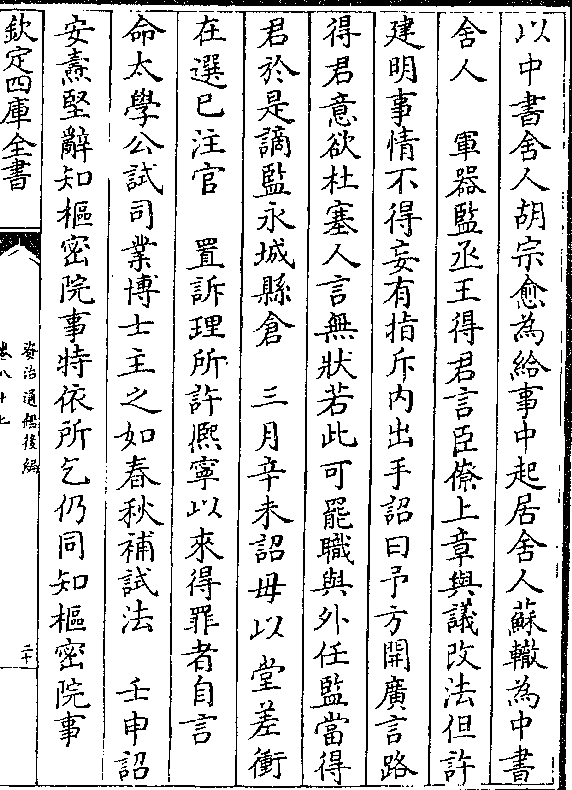 以中書舍人胡宗愈為給事中起居舍人蘇轍為中書
舍人　軍器監丞王得君言臣僚上章與議改法但許
建明事情不得妄有指斥内出手詔曰予方開廣言路
得君意欲杜塞人言無狀若此可罷職與外任監當得
君於是謫監永城縣倉　三月辛未詔毋以堂差衝
在選已注官　置訴理所許熈寧以來得罪者自言
命太學公試司業博士主之如春秋補試法　壬申詔
安燾堅辭知樞密院事特依所乞仍同知樞密院事
欽定四庫全書
資治通鑑後編
卷八十七
二十